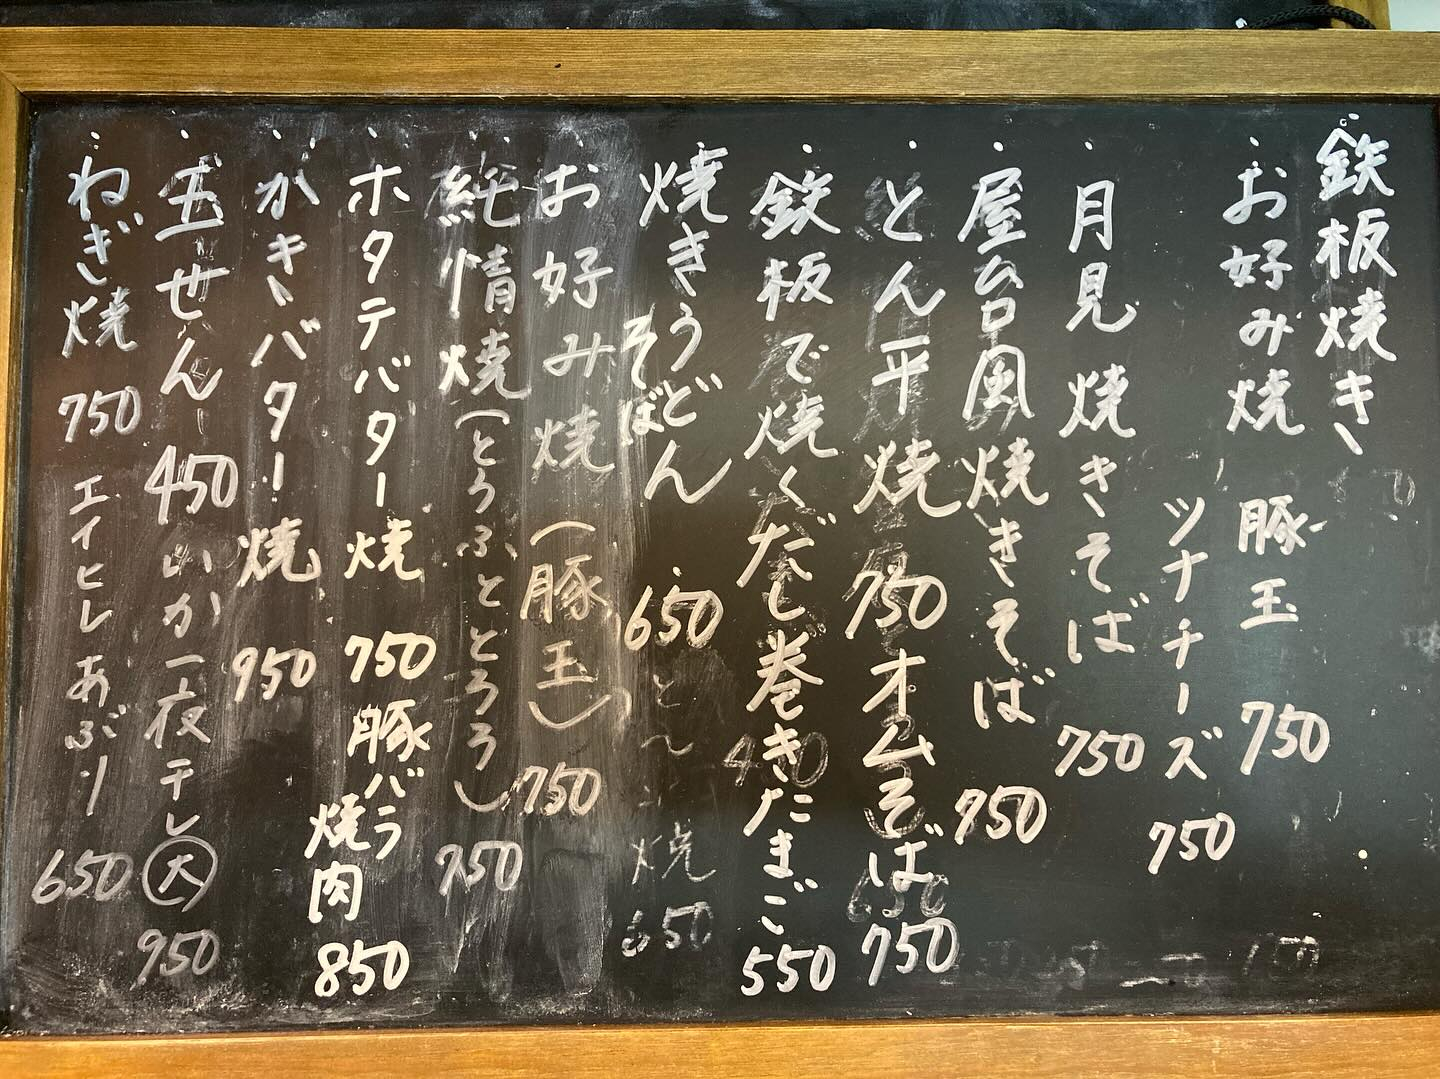 鉄板焼き
・お好み焼 豚玉 750
ツナチーズ 750
・月見焼きそば 750
・屋台風焼きそば 750
・とん平焼 750
オムそば 750
・鉄板で焼くだし巻きたまご 550
・焼きうどん
そばぼ
・650
・お好み焼(豚玉) 750
・純情焼(とうふととろろ) 750
・ホタテバター焼 750
豚バラ
焼肉 850
・かきバター焼 950
・玉せん 450
いか一夜干し 大 950
・ねぎ焼 750
エイヒレあぶり 650